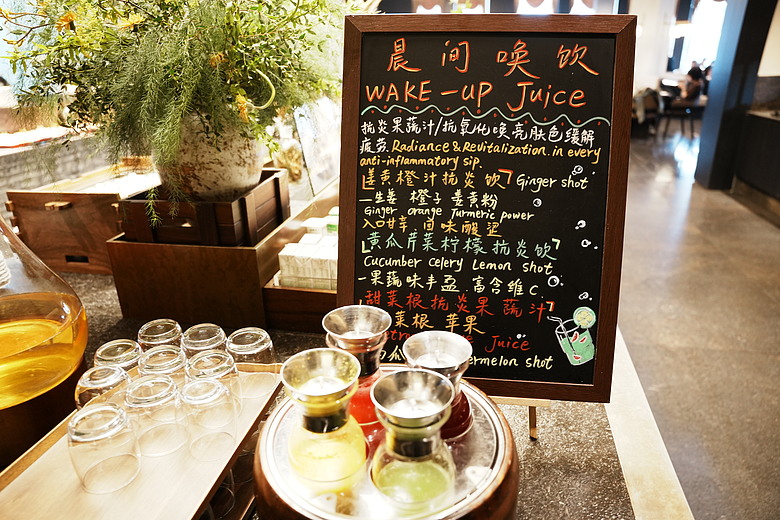 晨间唤饮
WAKE-UP Juice
抗炎果蔬汁/抗氧化唤亮肤色缓解
疲劳. Radiance & Revitalization in every
anti-inflammatory sip.
「姜黄橙汁抗炎饮」 Ginger shot
—生姜 橙子 姜黄粉
Ginger orange Turmeric power
入口甘辛 回味酸涩
「黄瓜芹菜柠檬抗炎饮」
Cucumber celery Lemon shot
—果蔬味丰盈 富含维C
「甜菜根抗炎果蔬汁」
菜根 苹果
Juice
ermelon shot